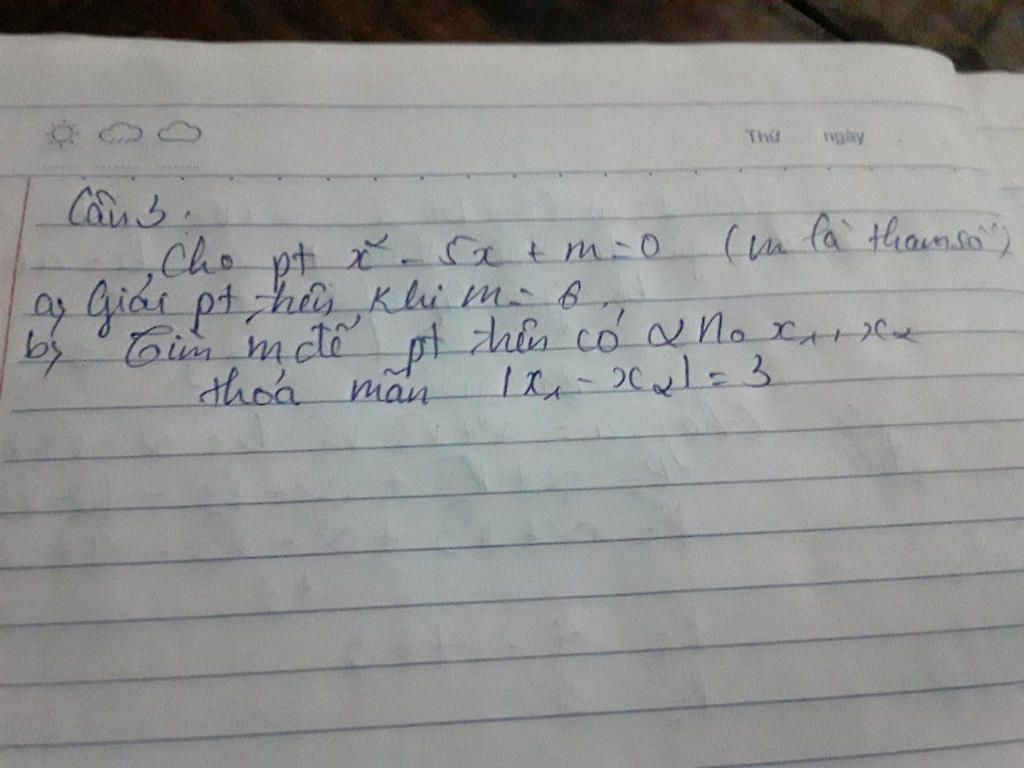 Thứ ngày
Câu 3.
Cho pt x² - 5x + m = 0 (m là tham số)
a, Giải pt trên khi m = 6.
b, Tìm m để pt trên có 2 n₀ x₁, x₂
thoả mãn |x₁ - x₂| = 3